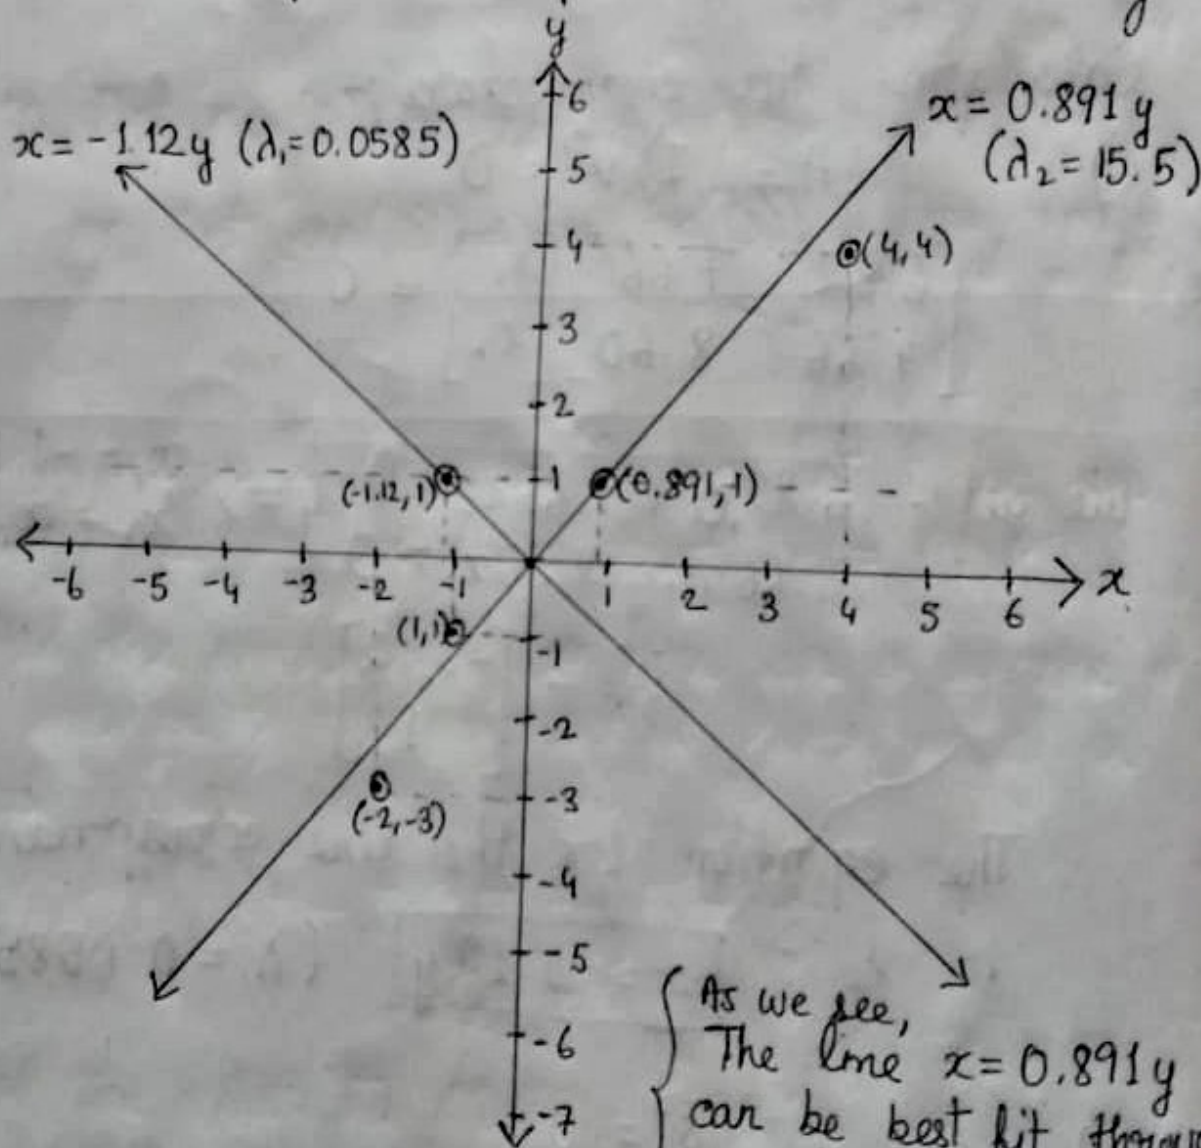 y
x = -1.12y (λ₁=0.0585)
x = 0.891y
(λ₂ = 15.5)
6
5
4
(4,4)
3
2
(-1.12, 1)
1
(0.891,1)
-6 -5 -4 -3 -2 -1 1 2 3 4 5 6 x
(1,1)
-1
-2
-3
(-2,-3)
-4
-5
-6
-7
As we see,
The line x = 0.891y
can be best fit